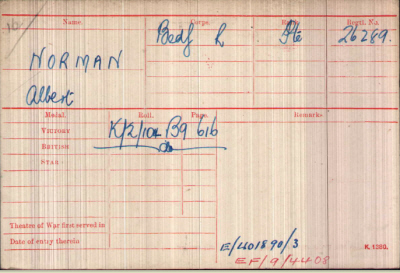 Name. Corps. Rank. Regtl. No.
NORMAN Bedf R Pte 26289.
Albert
Medal. Roll. Page. Remarks
Victory K/2/104 B9 616
British do
Star
Theatre of War first served in
Date of entry therein
E/401890/3
EF/9/4408
K. 1380.